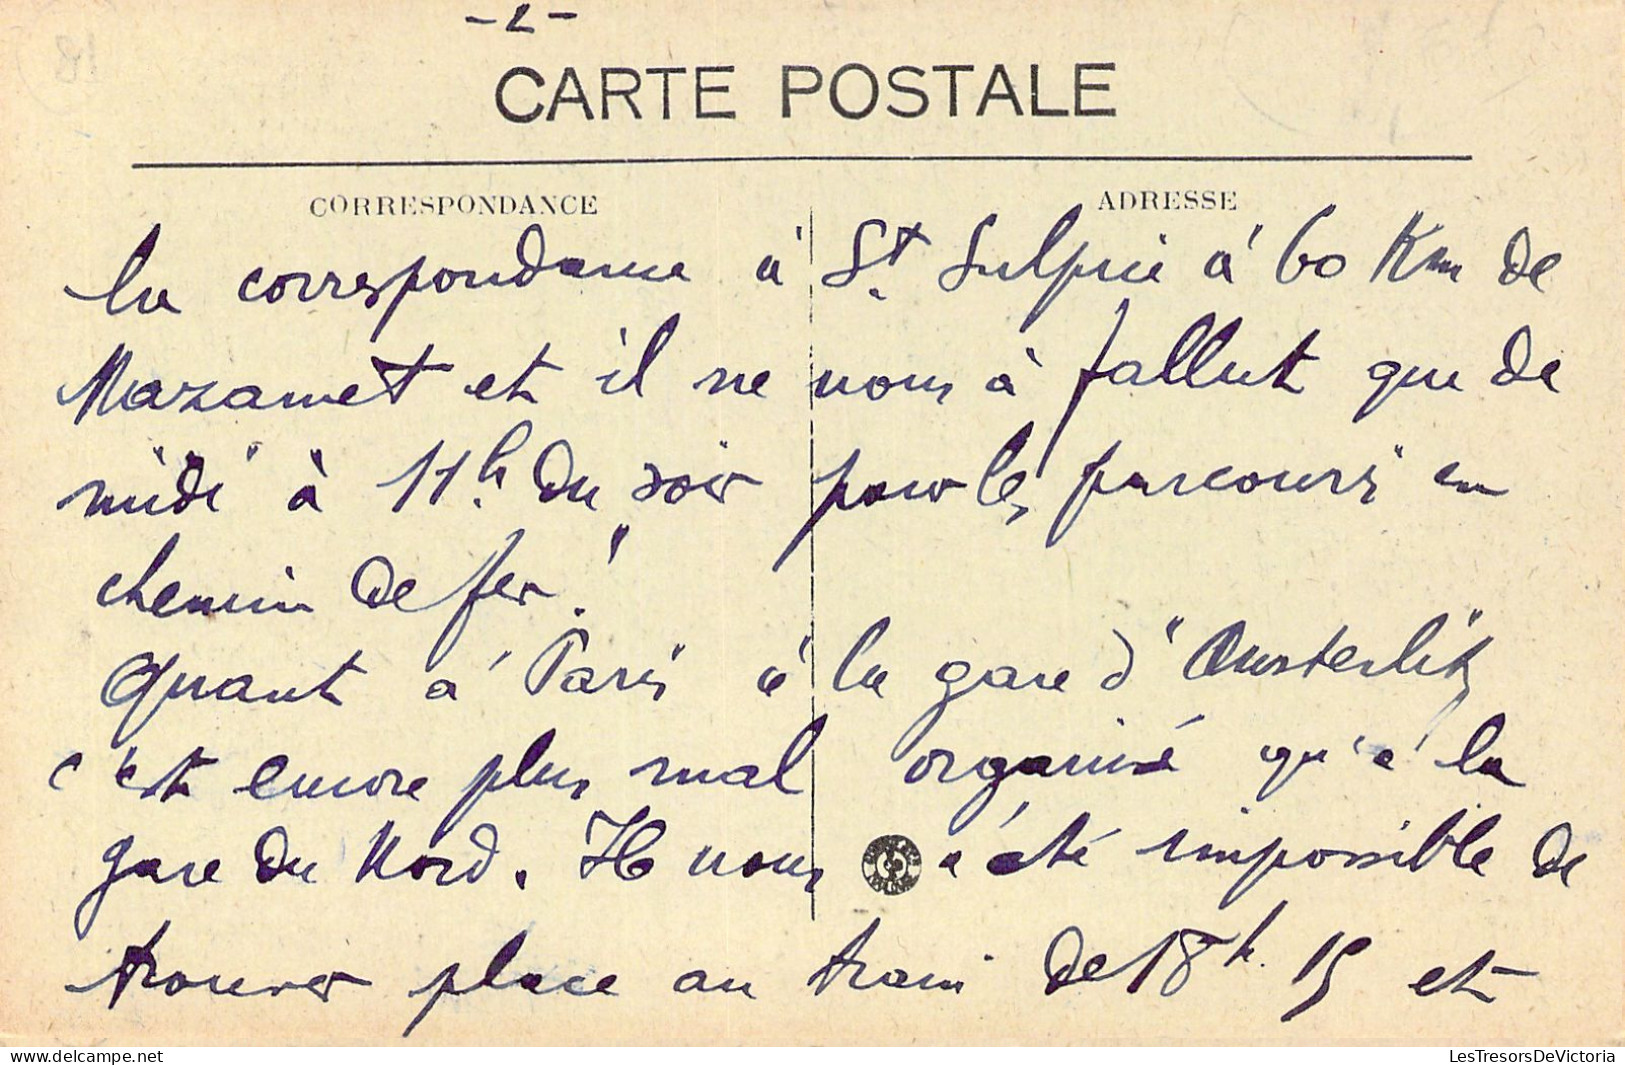 -2-
CARTE POSTALE
CORRESPONDANCE
ADRESSE
la correspondance à St. Sulpice à 60 Km de
Mazamet et il ne nous à fallut que de
midi à 11h. du soir pour les parcourir en
chemin de fer !
Quant à Paris à la gare d'"Austerlitz"
c'est encore plus mal organisé qu'à la
gare du Nord. Il nous a été impossible de
trouver place au train de 18h. 15 et
© Delcampe.net
LesTresorsDeVictoria